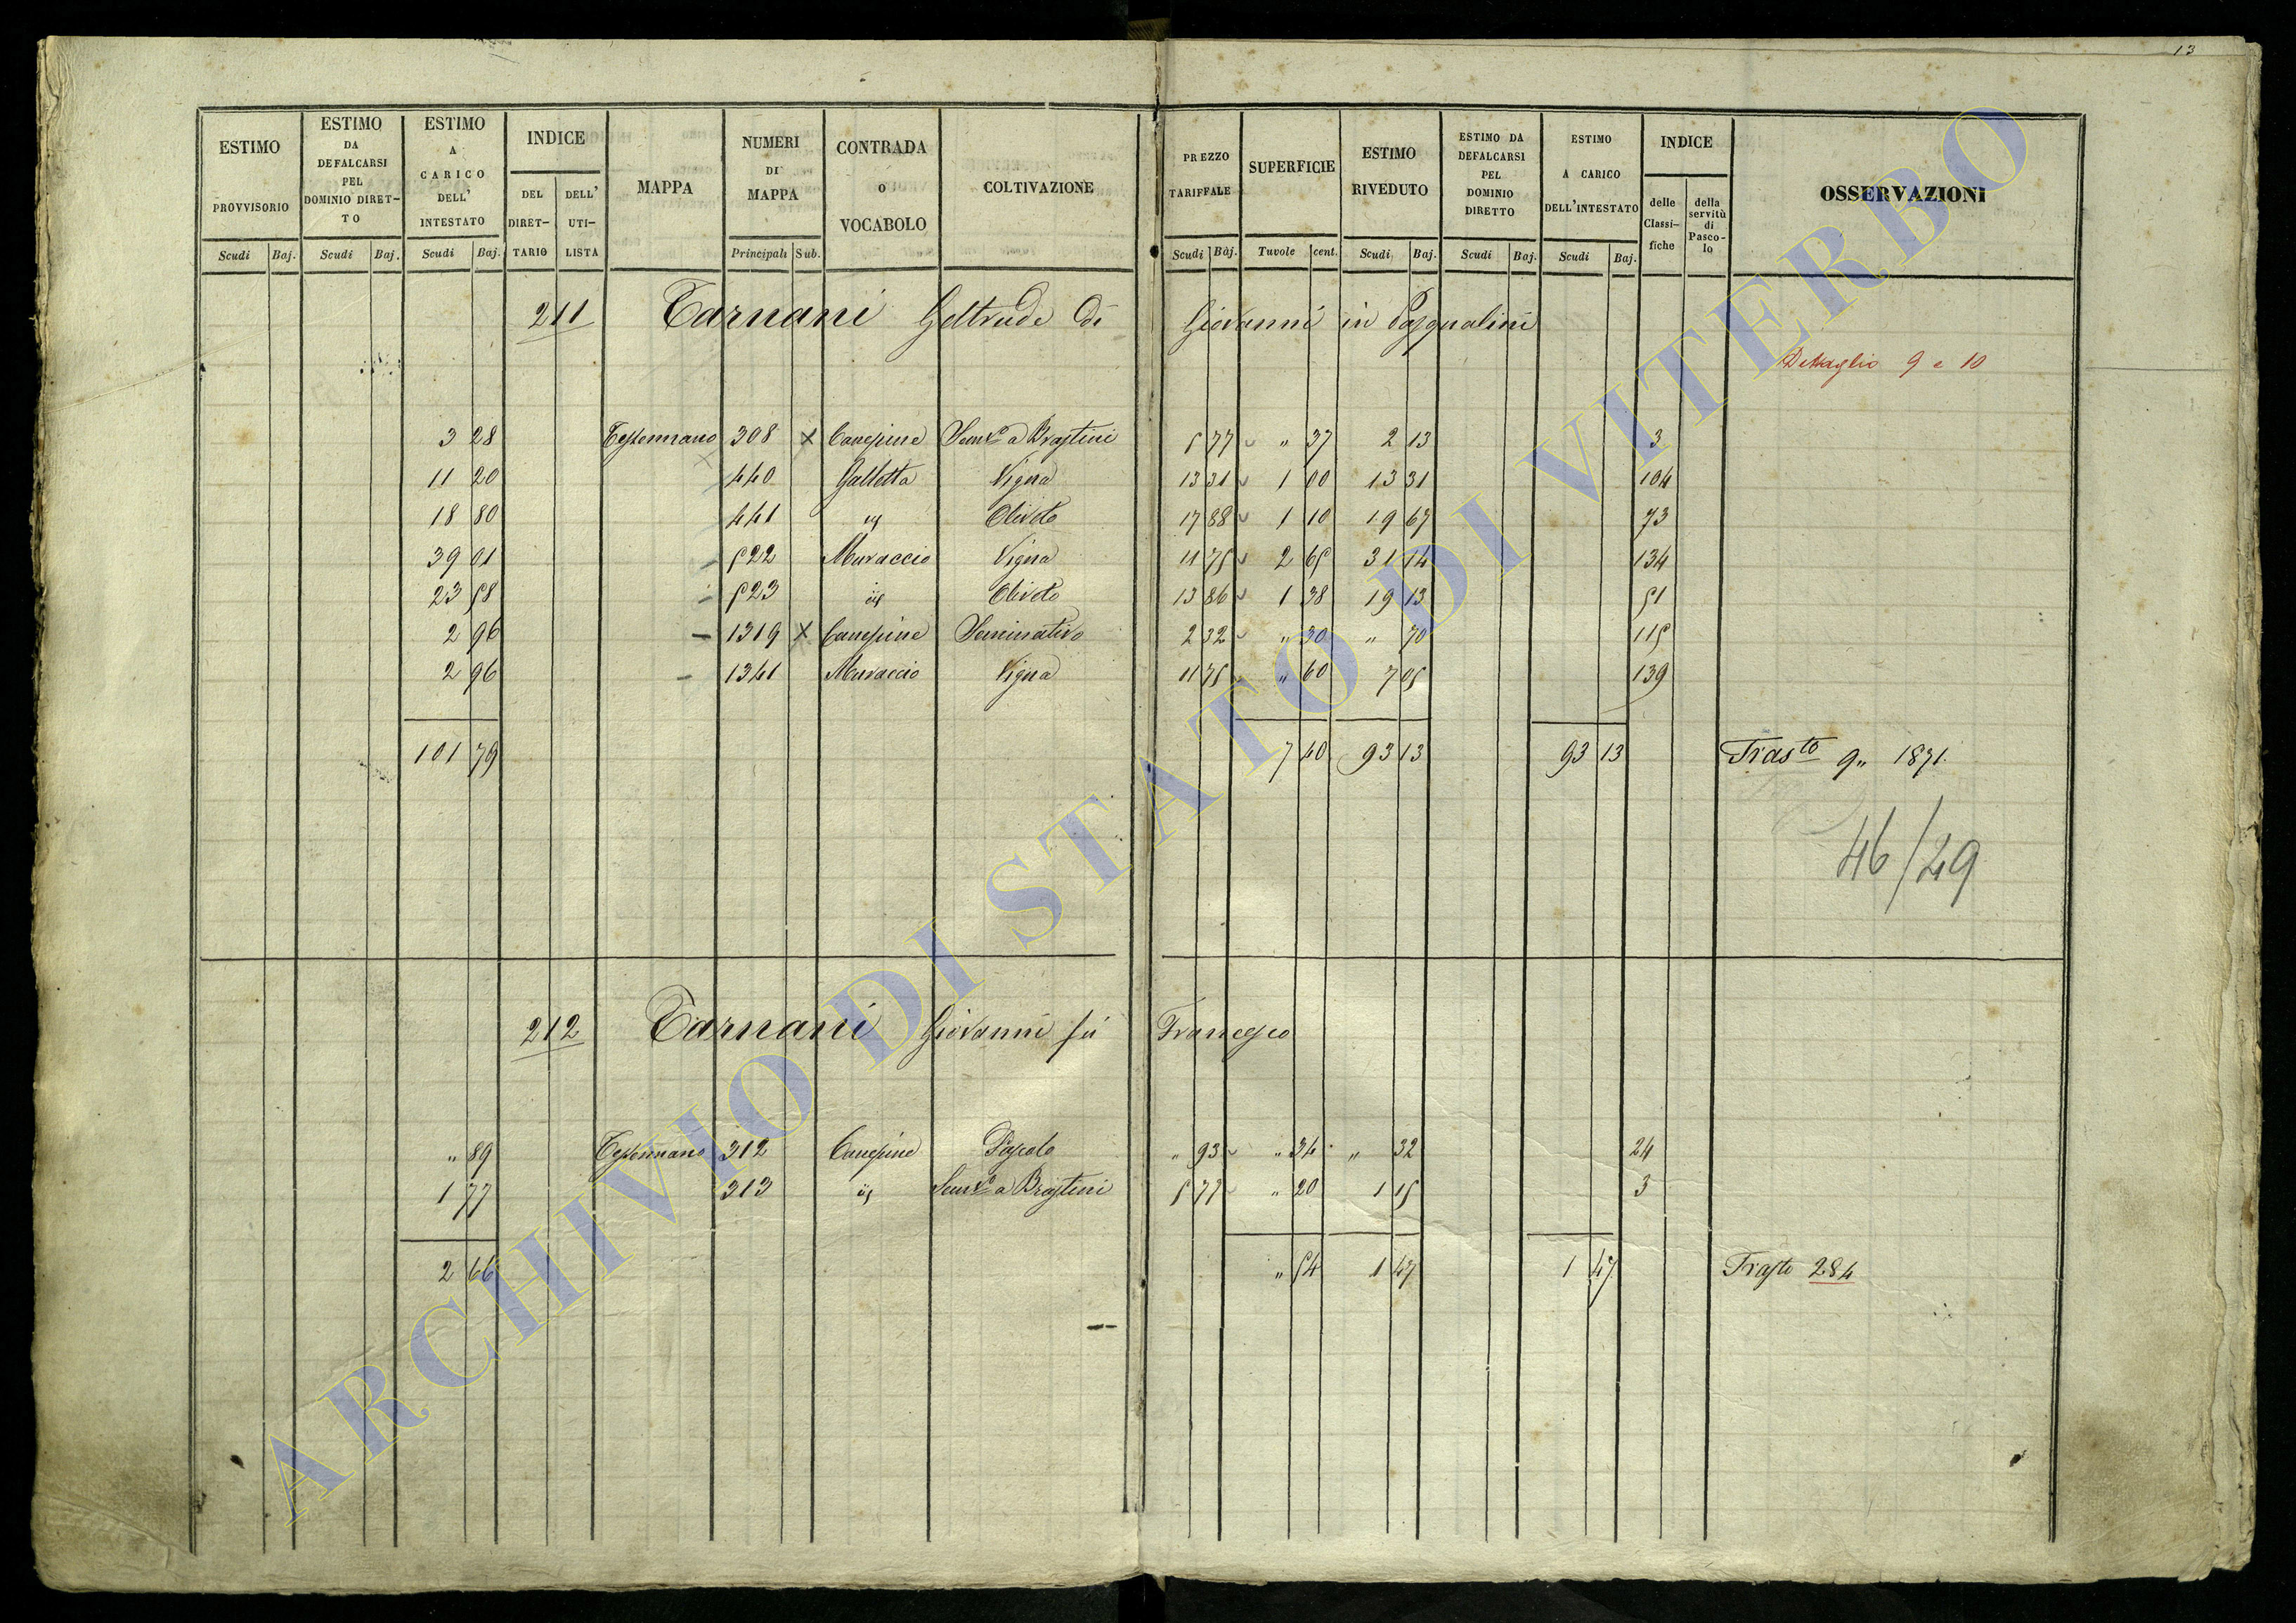 13
ESTIMO PROVVISORIO Scudi Baj. ESTIMO DA DEFALCARSI PEL DOMINIO DIRETTO Scudi Baj. ESTIMO A CARICO DELL' INTESTATO Scudi Baj. INDICE DEL DIRETTARIO DELL' UTILISTA MAPPA NUMERI DI MAPPA Principali Sub. CONTRADA O VOCABOLO COLTIVAZIONE PREZZO TARIFFALE Scudi Baj. SUPERFICIE Tavole cent. ESTIMO RIVEDUTO Scudi Baj. ESTIMO DA DEFALCARSI PEL DOMINIO DIRETTO Scudi Baj. ESTIMO A CARICO DELL'INTESTATO Scudi Baj. INDICE delle Classifiche della servitù di Pascolo OSSERVAZIONI
211 Tarnani Geltrude di Giovanni in Pasqualini
Dettaglio 9 e 10
3 28 Tessennano 308 x Canepine Semvo a Brastini 5 77 " 37 2 13 3
11 20 440 Galletta Vigna 13 31 1 00 13 31 104
18 80 441 id Oliveto 17 88 1 10 19 67 73
39 01 522 Muraccio Vigna 11 75 2 65 31 14 134
23 58 523 id Oliveto 13 86 1 38 19 13 51
2 96 1319 x Canepine Seminativo 2 32 " 30 " 70 115
2 96 1341 Muraccio Vigna 11 75 " 60 7 05 139
101 79 7 40 93 13 93 13 Trasto 9" 1871
46/29
212 Tarnani Giovanni fù Francesco
" 89 Tessennano 312 Canepine Pascolo " 93 " 34 " 32 24
1 77 313 id Semvo a Brastini 5 77 " 20 1 15 3
2 66 " 54 1 47 1 47 Trasto 284
ARCHIVIO DI STATO DI VITERBO